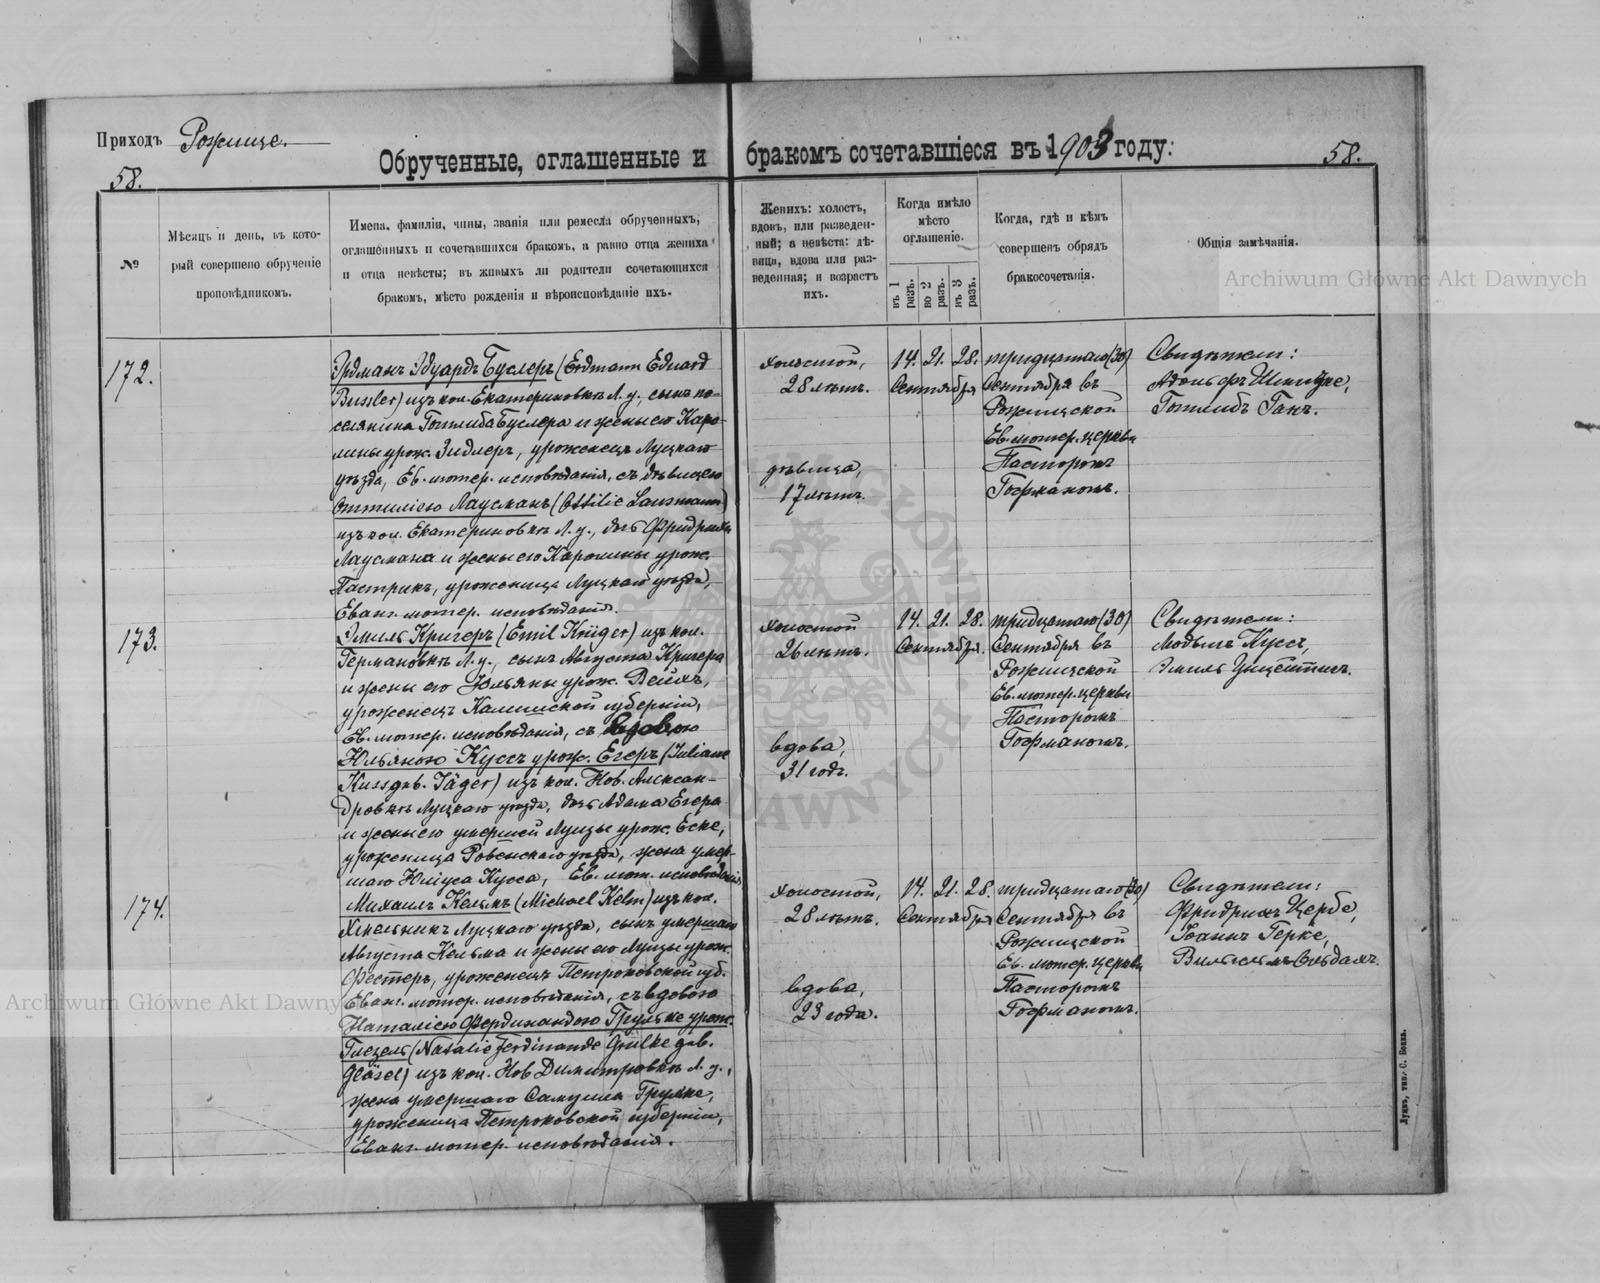 Приходъ Рожище.
Обрученные, оглашенные и бракомъ сочетавшіеся въ 1903 году.
58.
58.
№
Мѣсяцъ и день, въ кото-
рый совершено обрученіе
проповѣдникомъ.
Имена, фамиліи, чины, званія или ремесла обрученныхъ,
оглашенныхъ и сочетавшихся бракомъ, а равно отца жениха
и отца невѣсты; въ живыхъ ли родители сочетающихся
бракомъ, мѣсто рожденія и вѣроисповѣданіе ихъ.
Женихъ: холостъ,
вдовъ, или разведен-
ный; а невѣста: дѣ-
вица, вдова или раз-
веденная; и возрастъ
ихъ.
Когда имѣло
мѣсто
оглашеніе.
въ 1 разъ.
во 2 разъ.
въ 3 разъ.
Когда, гдѣ и кѣмъ
совершенъ обрядъ
бракосочетанія.
Общія замѣчанія.
Archiwum Główne Akt Dawnych
172.
Эрдманъ Эдуардъ Буслеръ (Erdmann Eduard
Bussler) изъ кол. Екатериновкѣ Л. у., сынъ по-
селянина Готлиба Буслера и жены его Каро-
лины урож. Зидлеръ, уроженецъ Луцкаго
уѣзда, Ев. лютер. исповѣданія, съ дѣвицею
Оттиліею Лаусманъ (Ottilie Lausmann)
изъ кол. Екатериновкѣ Л. у., дочь Фридриха
Лаусмана и жены его Каролины урож.
Пастрикъ, уроженица Луцкаго уѣзда,
Еванг. лютер. исповѣданія.
холостой,
28 лѣтъ.
дѣвица,
17 лѣтъ.
14. 21. 28.
Сентября
тридцатаго (30)
Сентября въ
Рожищской
Ев. лютер. церкви
Пасторомъ
Гофманомъ.
Свидѣтели:
Адольфъ
Готлибъ Ганъ.
173.
Эмиль Кригеръ (Emil Krüger) изъ кол.
Германовкѣ Л. у., сынъ Августа Кригера
и жены его Юльяны урож. Вейхъ,
уроженецъ Калишской губерніи,
Ев. лютер. исповѣданія, съ вдовою
Юльяною Куссъ урож. Егеръ (Juliane
Kuss geb. Jäger) изъ кол. Нов. Алексан-
дровкѣ Луцкаго уѣзда, дочь Адама Егера
и жены его умершей Луизы урож. Еске,
уроженица Ровенскаго уѣзда, жена умер-
шаго Юліуса Кусса, Ев. лют. исповѣданія
холостой
26 лѣтъ.
вдова,
31 годъ.
14. 21. 28.
Сентября.
тридцатаго (30)
Сентября въ
Рожищской
Ев. лютер. церкви
Пасторомъ
Гофманомъ.
Свидѣтели:
Куссъ,
Эмиль
174.
Михаилъ Кельмъ (Michael Kelm) изъ кол.
Хмельникъ Луцкаго уѣзда, сынъ умершаго
Августа Кельма и жены его Луизы урож.
Фестеръ, уроженецъ Петроковской губ.
Еванг. лютер. исповѣданія, съ вдовою
Наталіею Фердинандою Грульке урож.
Глезель (Natalie Ferdinande Grülke geb.
Gläsel) изъ кол. Нов. Димитровкѣ Л. у.,
жена умершаго Самуила Грулке,
уроженица Петроковской губерніи,
Еванг. лютер. исповѣданія.
холостой,
28 лѣтъ.
вдова,
23 года.
14. 21. 28.
Сентября
тридцатаго (30)
Сентября въ
Рожищской
Ев. лютер. церкви
Пасторомъ
Гофманомъ.
Свидѣтели:
Фридрихъ Цербе,
Іоаннъ Герке,
Вильгельмъ
Archiwum Główne Akt Dawnych